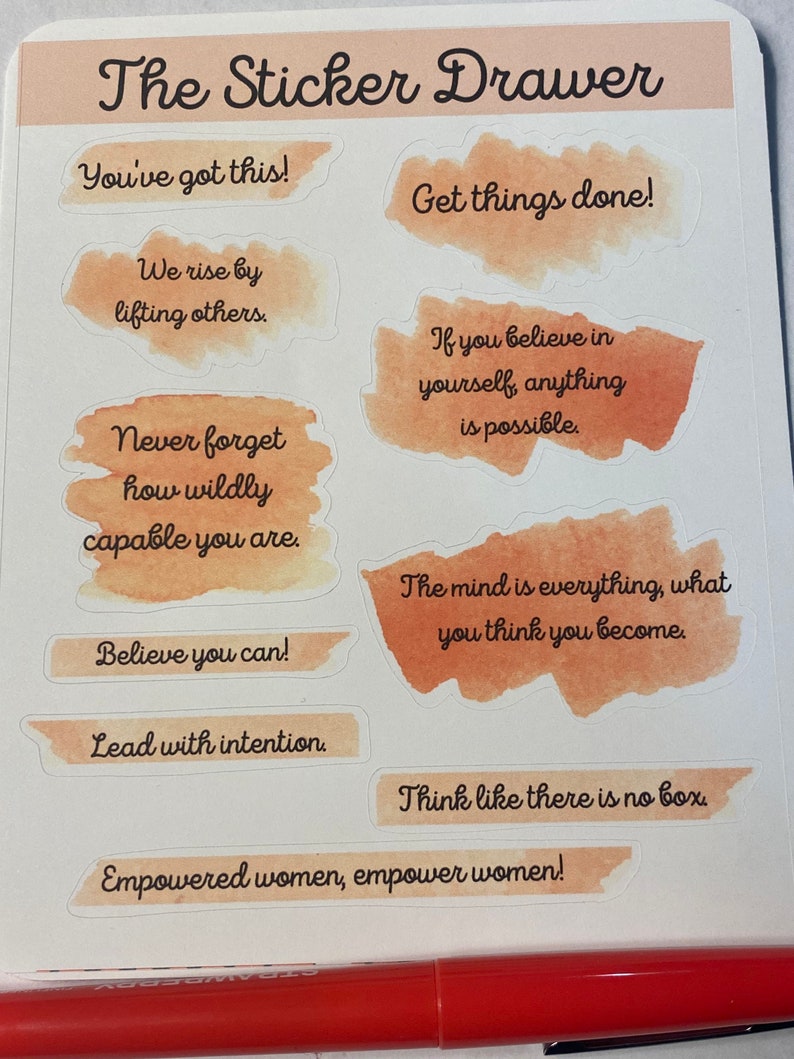 The Sticker Drawer
You've got this!
Get things done!
We rise by
lifting others.
If you believe in
yourself, anything
is possible.
Never forget
how wildly
capable you are.
The mind is everything, what
you think you become.
Believe you can!
Lead with intention.
Think like there is no box.
Empowered women, empower women!
STRAWBERRY